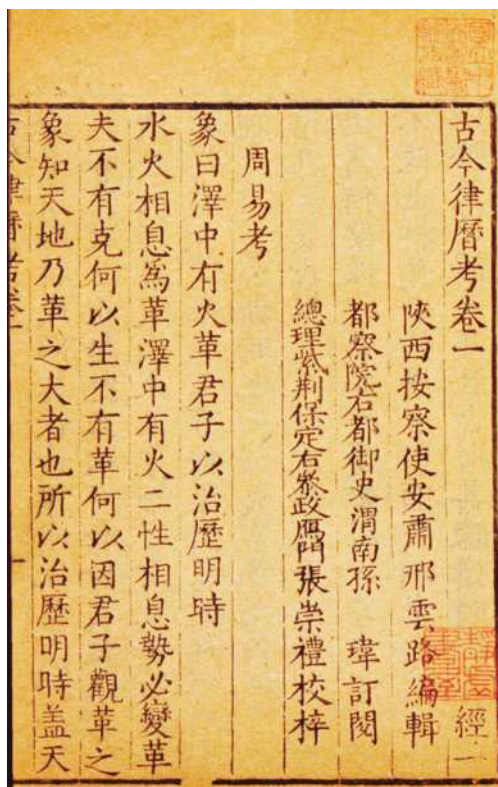 古今律曆考卷一 經一
陝西按察使安肅邢雲路編輯
都察院右都御史渭南孫 瑋訂閱
總理紫荊保定右叅政鴈門張崇禮校梓
周易考
象曰澤中有火革君子以治歷明時
水火相息為革澤中有火二性相息勢必變革
夫不有克何以生不有革何以因君子觀革之
象知天地乃革之大者也所以治歷明時盖天
古今律曆考卷一
一